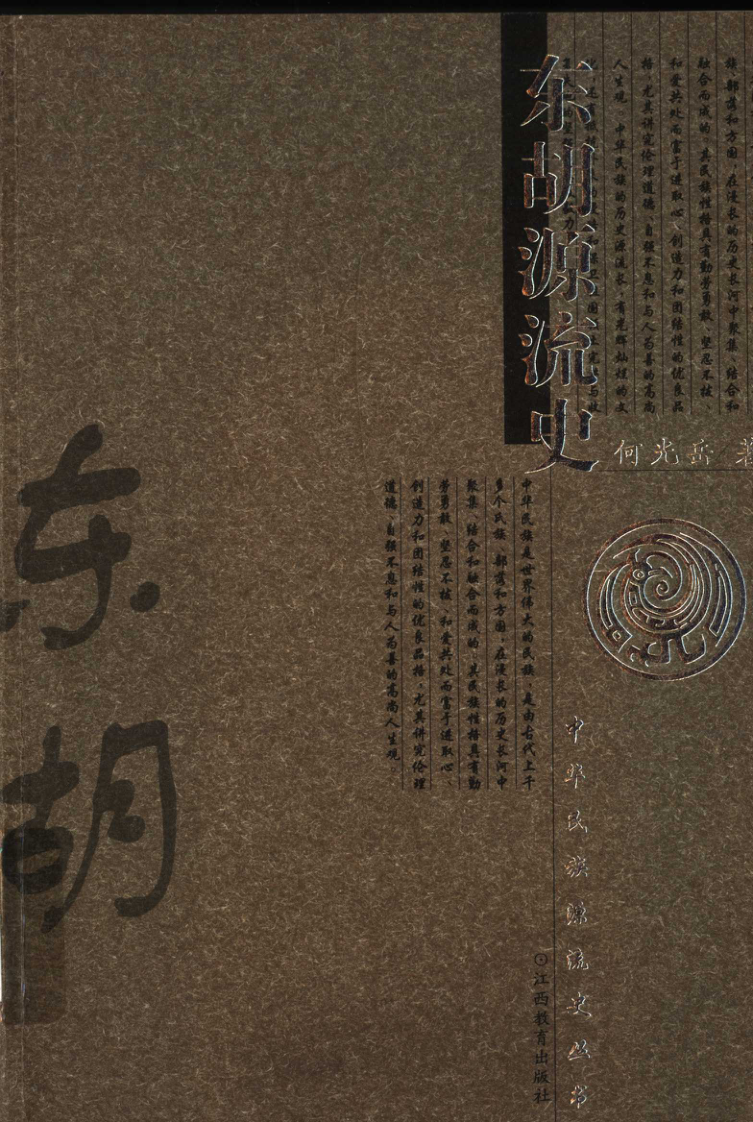 族、部落和方国,在漫长的历史长河中聚集、结合和
融合而成的,其民族性格具有勤劳勇敢、坚忍不拔、
和爱共处而富于进取心、创造力和团结性的优良品
格,尤其讲究伦理道德、自强不息和与人为善的高尚
人生观。中华民族的历史源流长,有光辉灿烂的文
东胡源流史
何光岳 著
中华民族是世界伟大的民族,是由古代上千
多个民族、部落和方国,在漫长的历史长河中
聚集、结合和融合而成的,其民族性格具有勤
劳勇敢、坚忍不拔、和爱共处而富于进取心、
创造力和团结性的优良品格,尤其讲究伦理
道德、自强不息和与人为善的高尚人生观。
中华民族源流史丛书
江西教育出版社
东胡